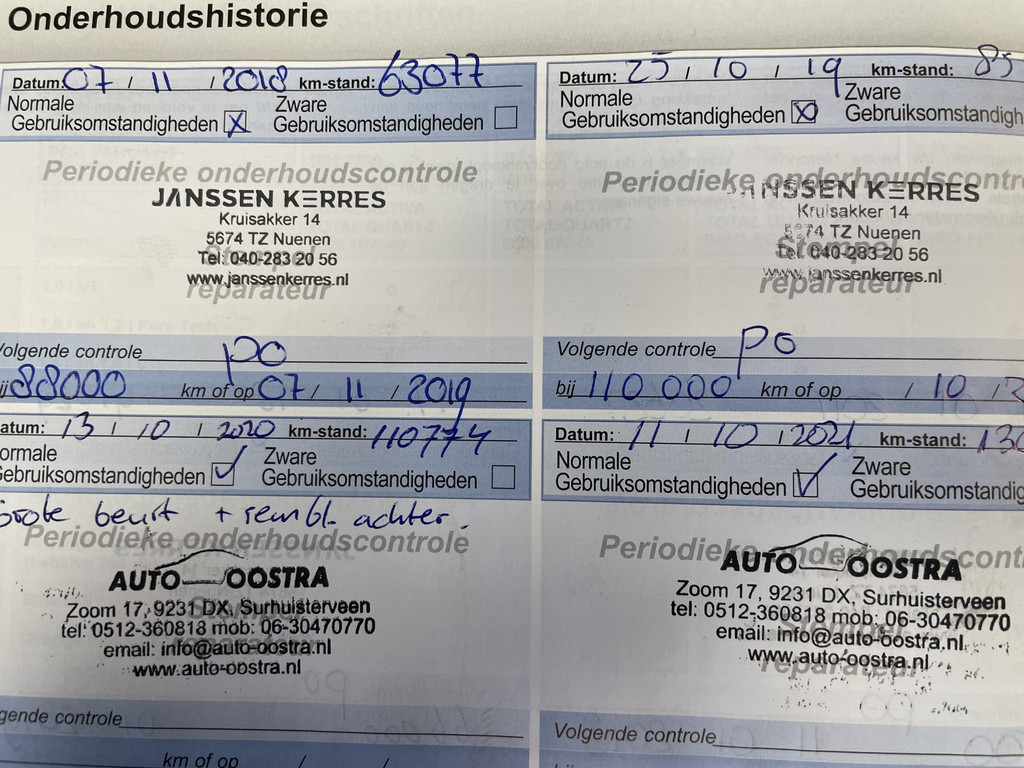 Onderhoudshistorie
Datum: 07 / 11 / 2018 km-stand: 63077
Normale Zware
Gebruiksomstandigheden x Gebruiksomstandigheden
Periodieke onderhoudscontrole
JANSSEN KERRES
Kruisakker 14
5674 TZ Nuenen
Stempel
Tel: 040-283 20 56
www.janssenkerres.nl
reparateur
Volgende controle PO
bij 88000 km of op 07 / 11 / 2019
Datum: 25 / 10 / 19 km-stand: 85
Normale Zware
Gebruiksomstandigheden x Gebruiksomstandigh
Periodieke onderhoudscontro
JANSSEN KERRES
Kruisakker 14
5674 TZ Nuenen
Stempel
Tel: 040-283 20 56
www.janssenkerres.nl
reparateur
Volgende controle PO
bij 110 000 km of op / 10 / 2
atum: 13 / 10 / 2020 km-stand: 110774
ormale Zware
Gebruiksomstandigheden ✓ Gebruiksomstandigheden
Grote beurt + rembl. achter.
Periodieke onderhoudscontrole
AUTO OOSTRA
Zoom 17, 9231 DX, Surhuisterveen
tel: 0512-360818 mob: 06-30470770
email: info@auto-oostra.nl
www.auto-oostra.nl
gende controle
km of op / /
Datum: 11 / 10 / 2021 km-stand: 130
Normale Zware
Gebruiksomstandigheden ✓ Gebruiksomstandig
Periodieke onderhoudscont
AUTO OOSTRA
Zoom 17, 9231 DX, Surhuisterveen
tel: 0512-360818 mob: 06-30470770
Stempel
email: info@auto-oostra.nl
www.auto-oostra.nl
reparateur
Volgende controle